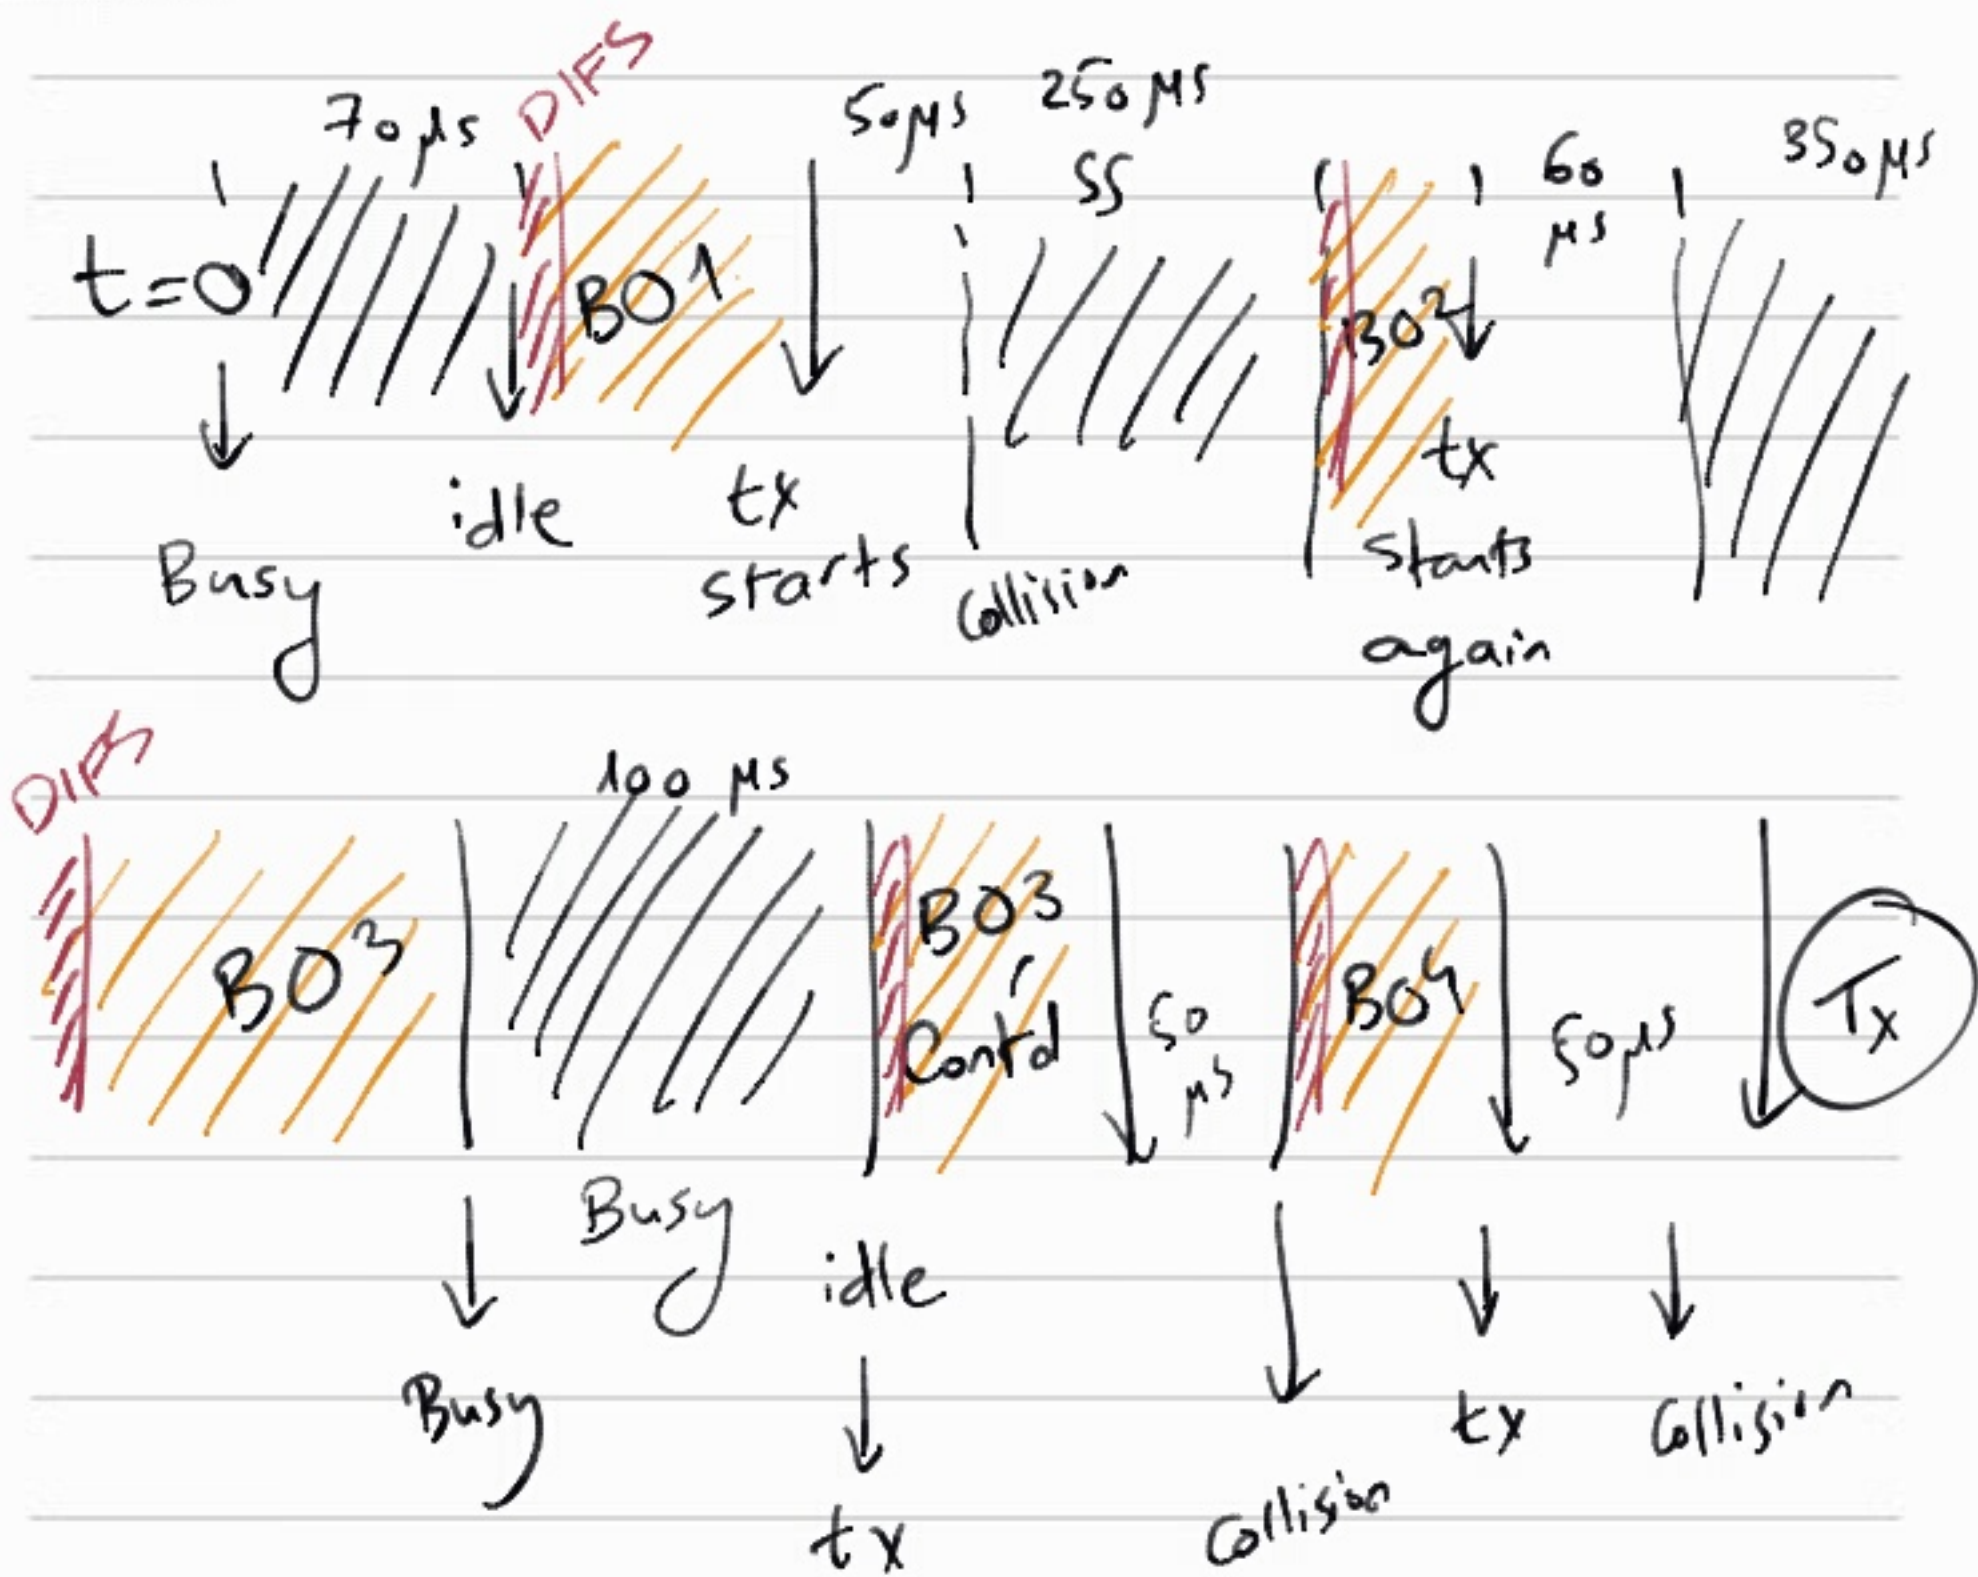 70 μs DIFS 50 μs 250 μs
SS 60 μs 350 μs
t=0 BO1 BO2
idle tx tx
Busy starts Collision starts
again
DIFS 100 μs
BO3 BO3 Cont'd 50 μs BO4 50 μs Tx
Busy idle
Busy tx Collision tx Collision